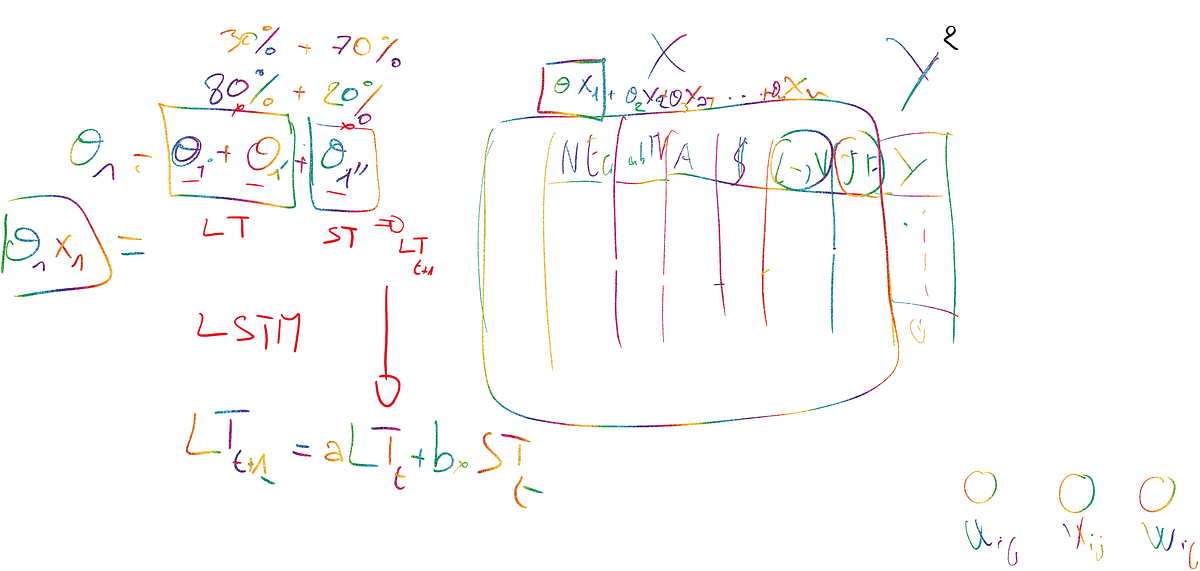 30% + 70%
80% + 20%
θ₁ = θ₁ + θ₁' + θ₁''
LT
ST ⇒ LT t+1
θ₁ x₁ =
LSTM
LT t+1 = aLT t + b × ST t
X
Y
θ X₁ + θ₂X₂ + θ₃X₃ + ... + θₙXₙ
A $ Y
u ij x ij w ij